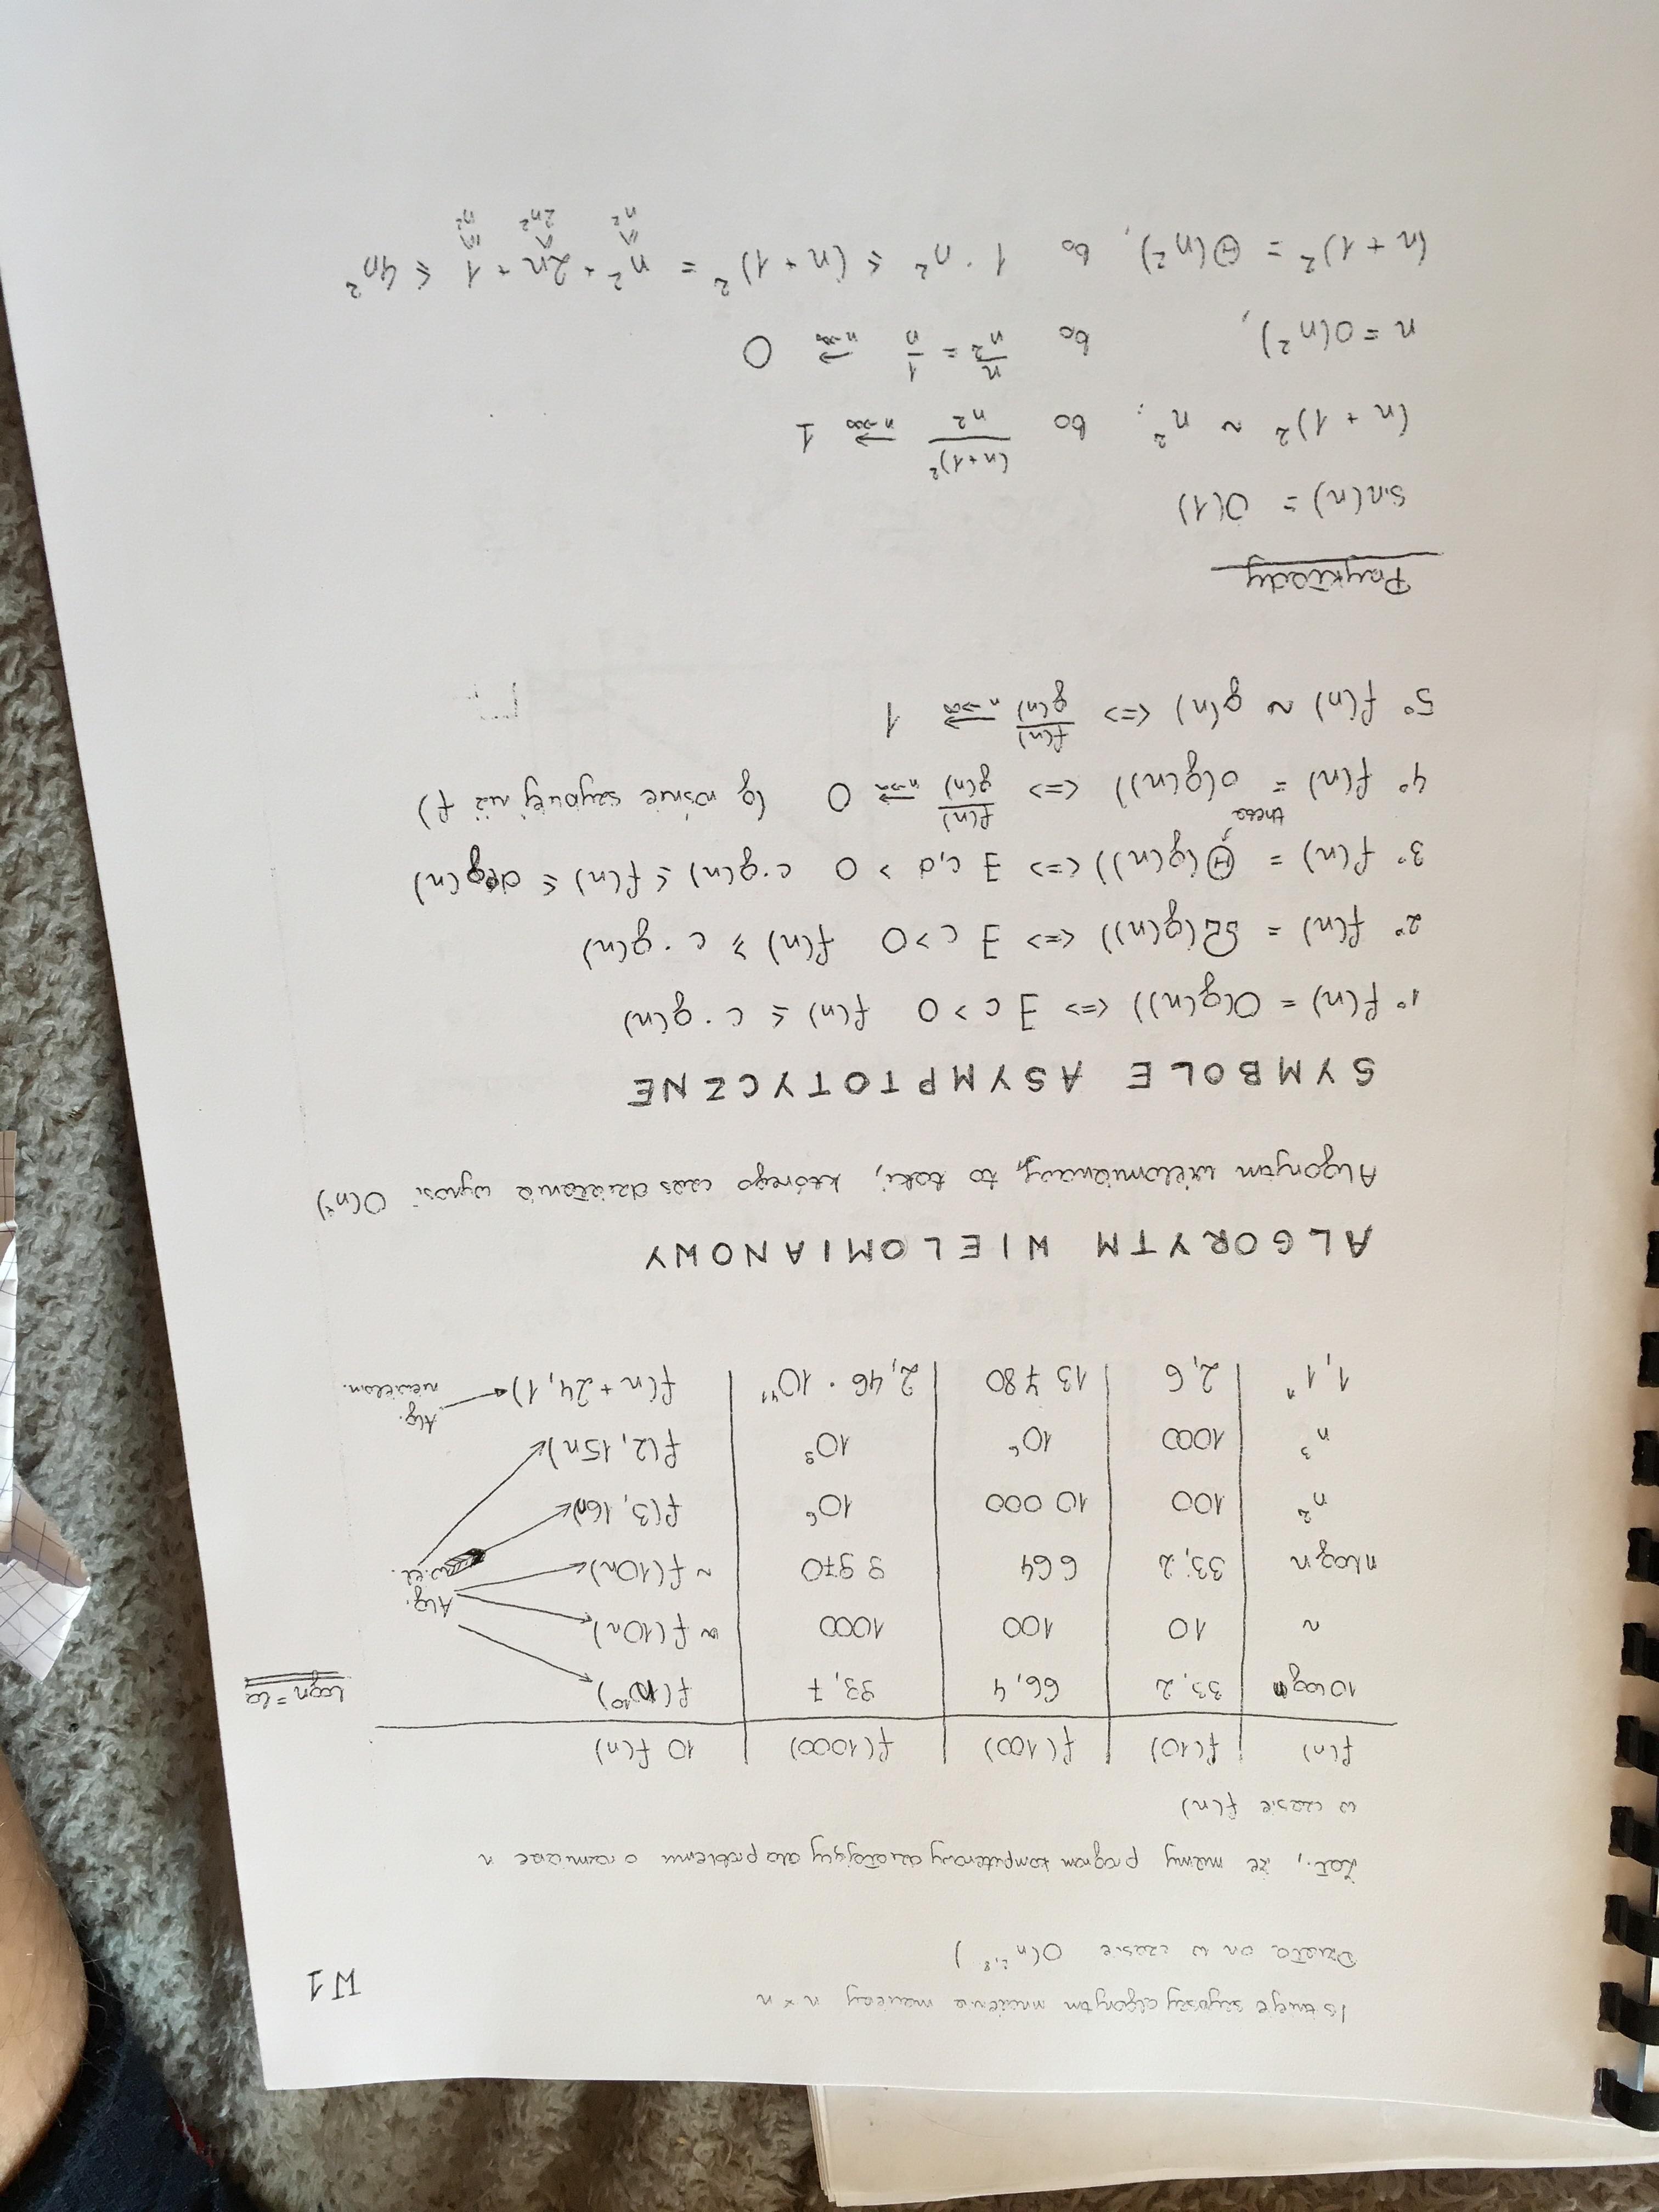 Istnieje szybszy algorytm mnożenia macierzy n × n
W1
Działa on w czasie O(n^2,8)
Zał., że mamy program komputerowy działający dla problemu o rozmiarze n
w czasie f(n)
f(n) f(10) f(100) f(1000) 10 f(n)
10 log n 33,2 66,4 99,7 f(n^10) log n = lo
n 10 100 1000 ~ f(10n) Alg.
n log n 33,2 664 9 970 ~ f(10n) wiel.
n^2 100 10 000 10^6 f(3,16n)
n^3 1000 10^6 10^9 f(2,15n)
1,1^n 2,6 13 780 2,46 · 10^41 f(n + 24,1) Alg. niewielom.
ALGORYTM WIELOMIANOWY
Algorytm wielomianowy, to taki, którego czas działania wynosi
SYMBOLE ASYMPTOTYCZNE
1° f(n) = O(g(n)) <=> ∃ c > 0 f(n) ≤ c · g(n)
2° f(n) = Ω(g(n)) <=> ∃ c > 0 f(n) ≥ c · g(n)
3° f(n) = Θ(g(n)) <=> ∃ c,d > 0 c·g(n) ≤ f(n) ≤ d·g(n)
theta
4° f(n) = o(g(n)) <=> f(n)/g(n) →n→∞ 0 (g rośnie szybciej niż f)
5° f(n) ~ g(n) <=> f(n)/g(n) →n→∞ 1
Przykłady
sin(n) = O(1)
(n + 1)^2 ~ n^2, bo (n+1)^2/n^2 →n→∞ 1
n = o(n^2), bo n/n^2 = 1/n →n→∞ 0
(n + 1)^2 = Θ(n^2), bo 1 · n^2 ≤ (n + 1)^2 = n^2 + 2n + 1 ≤ 4n^2
n^2 2n^2 n^2